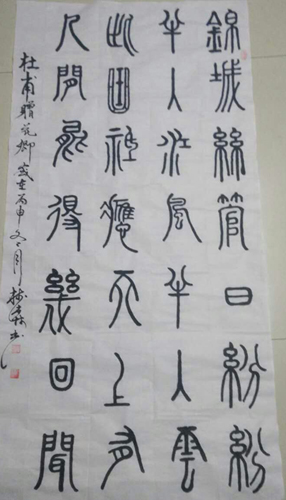 錦城絲管日紛紛
半入江風半入雲
此曲祇應天上有
人間能得幾回聞
杜甫贈花卿歲在丙申月